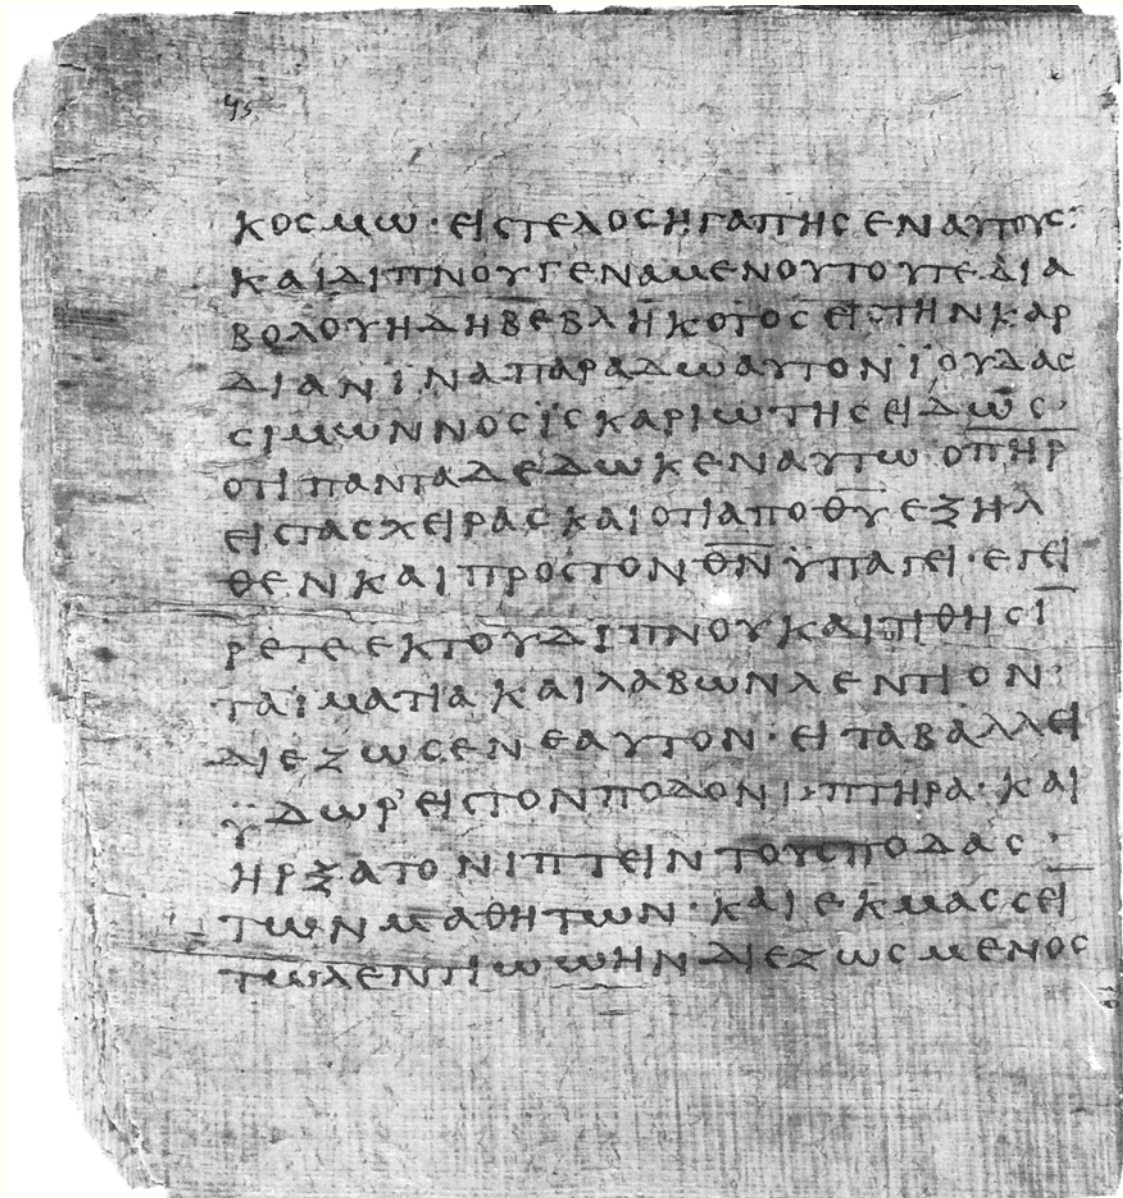 ϥⲋ
ΚΟСΜω · ΕΙСΤΕΛΟСΗΓΑΠΗСΕΝΑΥΤΟΥС:
ΚΑΙΔΙΠΝΟΥΓΕΝΑΜΕΝΟΥΤΟΥΤΕΔΙΑ
ΒΟΛΟΥΗΔΗΒΕΒΛΗΚΟΤΟСΕΙСΤΗΝΚΑΡ
ΔΙΑΝΪΝΑΠΑΡΑΔωΑΥΤΟΝΪΟΥΔΑС
СΙΜωΝΝΟСΪСΚΑΡΙωΤΗСΕΙΔωС·
ΟΤΙΠΑΝΤΑΔΕΔωΚΕΝΑΥΤωΟΠ̅Η̅Ρ̅
ΕΙСΤΑСΧΕΙΡΑСΚΑΙΟΤΙΑΠΟΘ̅Υ̅ΕΞΗΛ
ΘΕΝΚΑΙΠΡΟСΤΟΝΘ̅Ν̅ΫΠΑΓΕΙ·ΕΓΕΙ
ΡΕΤΕΕΚΤΟΥΔΙΠΝΟΥΚΑΙΤΙΘΗСΙ̅
ΤΑΪΜΑΤΙΑΚΑΙΛΑΒωΝΛΕΝΤΙΟΝ·
ΔΙΕΖωСΕΝΕΑΥΤΟΝ·ΕΙΤΑΒΑΛΛΕΙ
ΫΔωΡ'ΕΙСΤΟΝΠΟΔΟΝΙΠΤΗΡΑ·ΚΑΙ
ΗΡΞΑΤΟΝΙΠΤΕΙΝΤΟΥСΠΟΔΑС·
ΤωΝΜΑΘΗΤωΝ·ΚΑΙΕΚΜΑССΕΙ̅
ΤωΛΕΝΤΙωωΗΝΔΙΕΖωСΜΕΝΟС